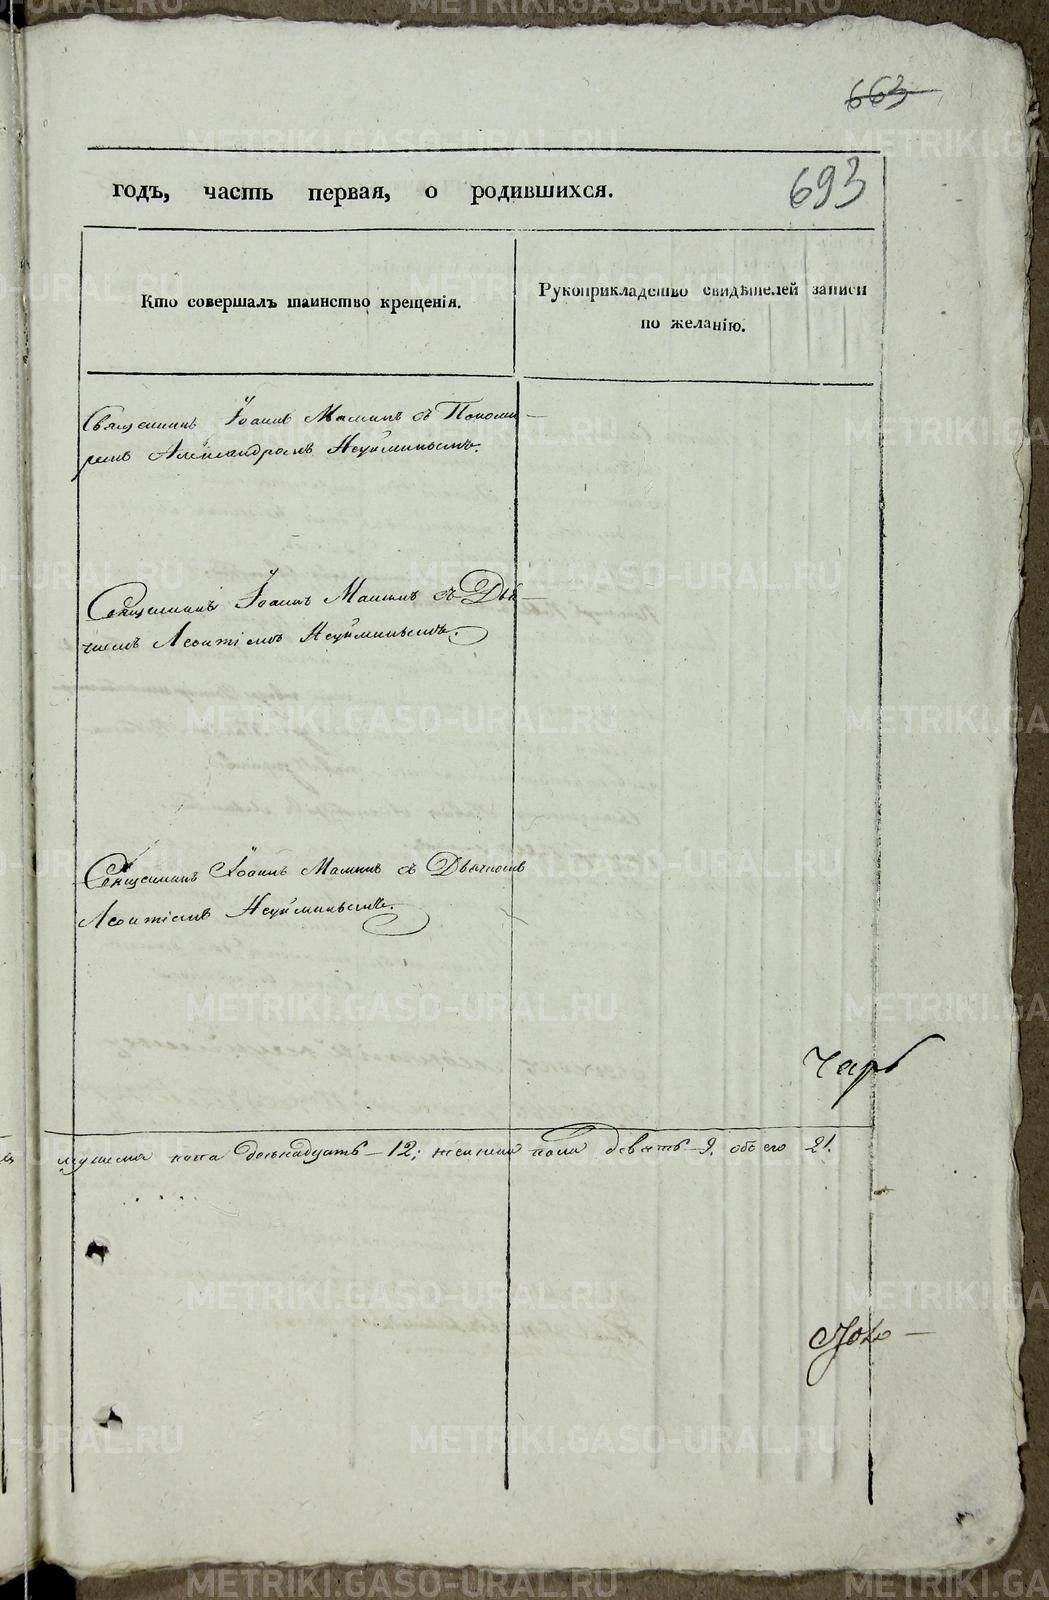 663
693
годъ, часть первая, о родившихся.
Кто совершалъ таинство крещенія.
Рукоприкладство свидѣтелей записи
по желанію.
Священникъ Іоаннъ Маминъ съ Понома-
ремъ Александромъ Неуйминымъ.
Священникъ Іоаннъ Маминъ съ Дья-
чкомъ Леонтіемъ Неуйминымъ.
Священникъ Іоаннъ Маминъ съ Дьячкомъ
Леонтіемъ Неуйминымъ.
мужеска пола двенадцать – 12; женска пола девять – 9. обоего 21.
METRIKI.GASO-URAL.RU